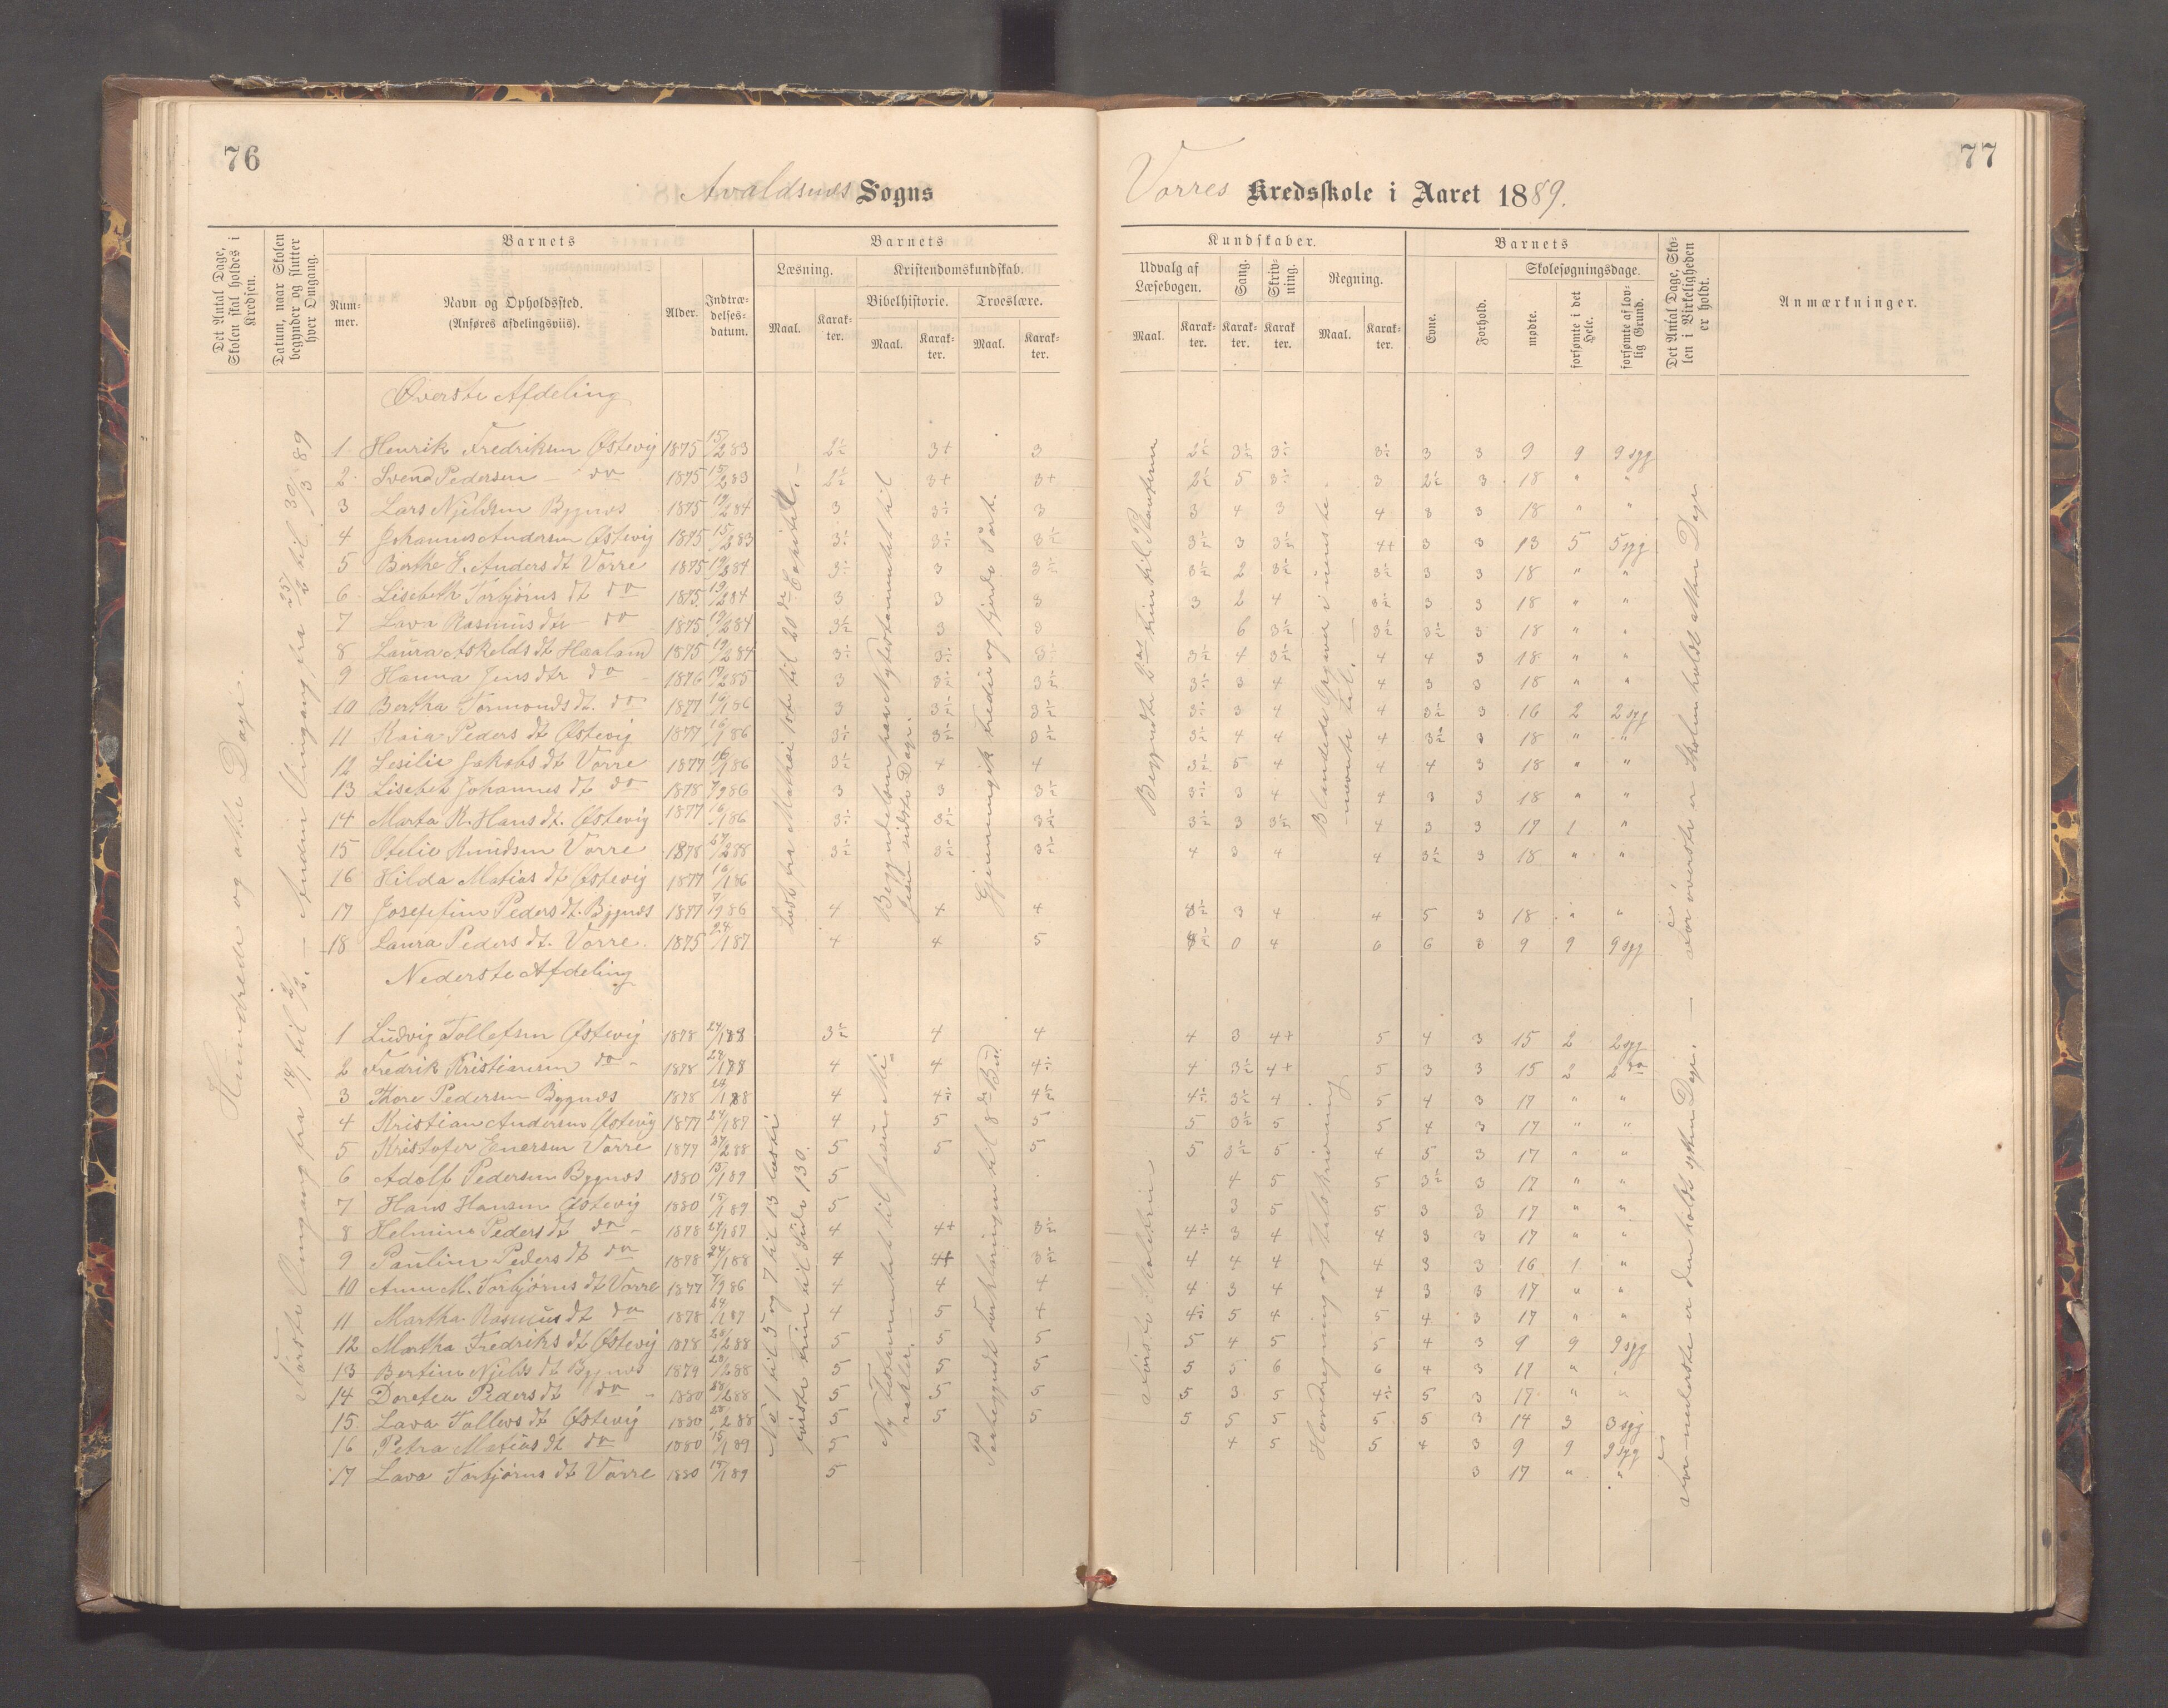 76
77
Avaldsnes Sogns
Vorres Kredsskole i Aaret 1889.
Det Antal Dage, Skolen skal holdes i Kredsen.
Datum, naar Skolen begynder og slutter hver Omgang.
Barnets
Num-mer.
Navn og Opholdssted.
(Anføres afdelingsviis).
Alder.
Indtræ-delses-datum.
Barnets
Læsning.
Maal.
Karak-ter.
Kristendomskundskab.
Bibelhistorie.
Maal.
Karak-ter.
Troeslære.
Maal.
Karak-ter.
Kundskaber.
Udvalg af Læsebogen.
Maal.
Karak-ter.
Sang.
Karak-ter.
Skriv-ning.
Karak-ter.
Regning.
Maal.
Karak-ter.
Barnets
Evne.
Forhold.
Skolesøgningsdage.
mødte.
forsømte i det Hele.
forsømte af lov-lig Grund.
Det Antal Dage, Sko-len i Virkeligheden er holdt.
Anmærkninger.
Hundrede og otte Dage.
Første Omgang fra 14/1 til 2/2. – Anden Omgang fra 25/2 til 30/3 89
Øverste Afdeling
1 Henrik Fredriksen Østevig 1875 15/2 83 2½ 3+ 3 2½ 3½ 3÷ 3÷ 3 3 9 9 9 syg
2 Svend Pedersen – do 1875 15/2 83 2½ 3+ 3+ 2½ 5 3÷ 3 2½ 3 18 " "
3 Lars Njeldsen Bygnes 1875 19/2 84 3 3÷ 3 3 4 3 4 3 3 18 " "
4 Johannes Andersen Østevig 1875 15/2 83 3÷ 3÷ 3½ 3½ 3 3½ 4+ 3 3 13 5 5 syg
5 Berthe E. Anders dt Vorre 1875 19/2 84 3÷ 3 3½ 3½ 2 3½ 3½ 3 3 18 " "
6 Lisebeth Torbjørns dt do 1875 19/2 84 3 3 3 3 2 4 3½ 3 3 18 " "
7 Lava Rasmus dtr do 1875 19/2 84 3½ 3 3 6 3½ 3½ 3½ 3 18 " "
8 Laura Askelds dt Haaland 1875 19/2 84 3÷ 3÷ 3÷ 3½ 4 3½ 4 4 3 18 " "
9 Hanna Jens dtr do 1876 17/2 85 3 3÷ 3½ 3÷ 3 4 4 3 3 18 " "
10 Bertha Tormonds dt. do 1877 16/1 86 3 3÷ 3½ 3÷ 3 4 4 3½ 3 16 2 2 syg
11 Kaia Peders dt Østevig 1877 16/1 86 3½ 3½ 3½ 3½ 4 4 4 3½ 3 18 " "
12 Lesilie Jakobs dt Vorre 1877 16/1 86 3½ 4 4 3½ 5 4 4 4 3 18 " "
13 Lisebet Johannes dt do 1878 7/9 86 3 3 3½ 3÷ 3 4 4 3 3 18 " "
14 Marta K. Hans dt. Østevig 1877 16/1 86 3÷ 3÷ 3½ 3½ 3 3½ 4 3 3 17 1 "
15 Otelie Knudsen Vorre 1878 27/2 88 3½ 3½ 3½ 4 3 4 4 3½ 3 18 " "
16 Hilda Matias dt Østevig 1877 16/1 86
17 Josefine Peders dt. Bygnes 1877 7/9 86 4 4 4 3½ 3 4 4 5 3 18 " "
18 Laura Peders dt. Vorre. 1875 24/1 87 4 4 5 4½ 0 4 6 6 3 9 9 9 syg
Læst fra Mathæi 10de til 20de Capitel. –
Begyndelsen paa Nytestamentet til Jesu sidste Dage.
Gjennemgik tredie og fjerde Part.
Begyndte 2det Trin til Planterne
Blandede Opgaver i uensbenævnte Tal.
For øverste er Skolen holdt atten Dage
Nederste Afdeling
1 Ludvig Tollefsen Østevig 1878 24/1 88 3½ 4 4 4 3 4+ 5 4 3 15 2 2 syg
2 Fredrik Kristiansen do 1878 28/1 88 4 4 4÷ 4 3½ 4+ 5 3 3 15 2 2 do
3 Thore Pedersen Bygnes 1878 28/1 88 4 4÷ 4½ 4½ 3½ 4 5 4 3 17 " "
4 Kristian Andersen Østevig 1877 24/1 87 4 5 5 5 3½ 5 5 4 3 17 " "
5 Kristofer Enersen Vorre 1879 27/2 88 5 5 5 5 3½ 5 4 5 3 17 " "
6 Adolf Pedersen Bygnes 1880 15/1 89 5 4 5 5 3½ 3 17 " "
7 Hans Hansen Østevig 1880 14/1 89 5 3 5 5 3 3 17 " "
8 Helmine Peders dt do 1878 24/1 87 4 4+ 3½ 4÷ 3 4 4 3 3 17 " "
9 Pauline Peders dt do 1878 24/1 88 4 4+ 3½ 4 4 4 4 3 3 16 1 "
10 Anne M. Torbjørns dt Vorre 1877 7/9 86 4 4 4 4 3 4 4 3 3 17 " "
11 Martha Rasmus dt do 1878 24/1 87 4 5 4 4÷ 5 4 5 4 3 17 " "
12 Martha Fredriks dt Østevig 1878 28/2 88 5 5 5 5 4 5 5 4 3 9 9 9 syg
13 Bertine Njelds dt Bygnes 1879 28/2 88 5 5 5 5 5 6 6 4 3 17 "
14 Doretea Peders dt do 1880 28/2 88 5 5 5 5 3 5 4½ 5 3 17 " "
15 Lava Tollevs dt Østevig 1880 28/2 88 5 5 5 5 5 5 5 5 3 14 3 3 syg
16 Petra Matias dt do 1880 15/1 89 5 4 5 5 4 3 9 9 9 syg
17 Lava Torbjørns dt Vorre 1880 14/1 89 5 3 17 " "
No 1 til 5 og 7 til 13 læste første Trin til Side 130.
Ny Testamentet til Jesu Mirakler.
Paabegyndt Forklaringen til 8de Bud.
Første Skoletrin
Hovedregning og Talskrivning
For nederste er den holdt sytten Dage. –